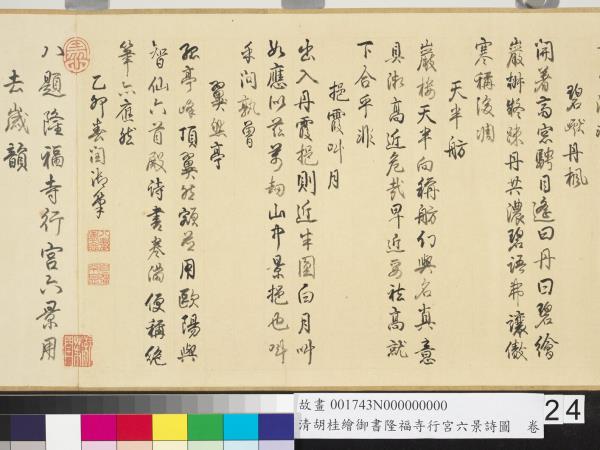 碧巘丹楓
開著高窓騁目遙曰丹曰碧繪
巖樹終殊丹共濃碧語弗讓傲
寒稱後凋
天半舫
巖樓天半向稱舫幻與名真意
具漪高近危哉早近妥祛高就
下合乎非
挹霞叫月
出入丹霞挹則近半圓白月叫
如應似茲萬劫山中景挹也叫
乎問孰曾
翼然亭
孤亭峰頂翼然額茲用歐陽與
智仙六首殿詩書卷滿便稱絕
筆亦應然
乙卯春閏御筆
八題隆福寺行宮六景用
去歲韻
故畫 001743N000000000
清胡桂繪御書隆福寺行宮六景詩圖 卷
24